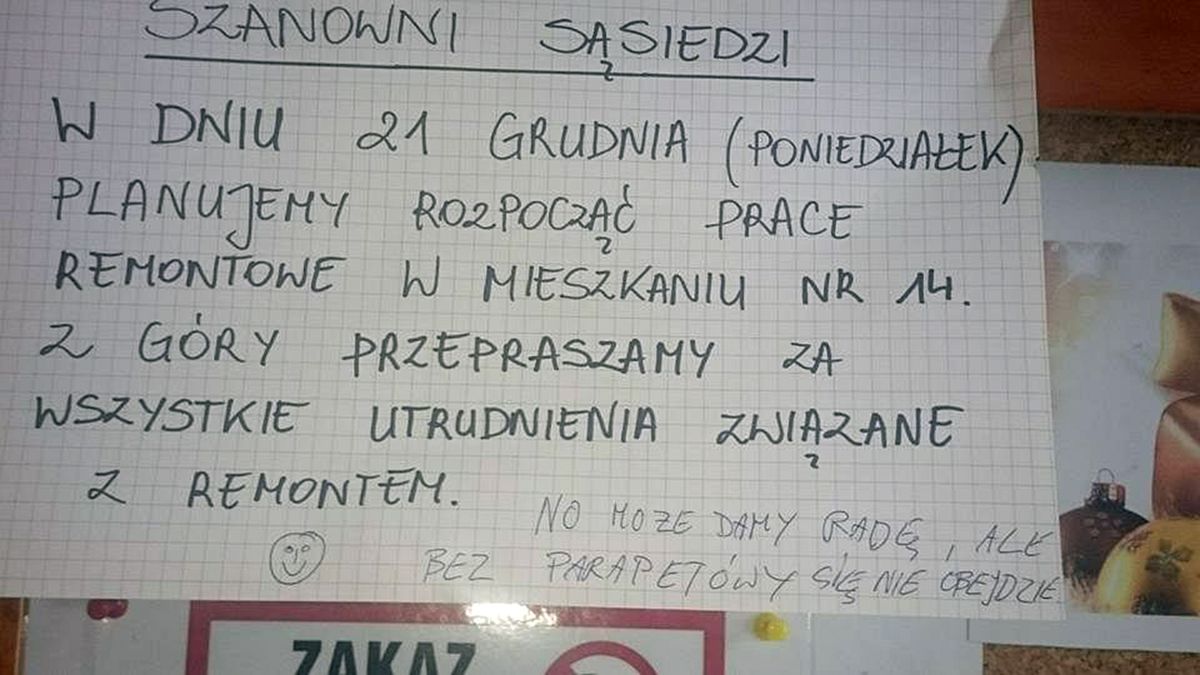 SZANOWNI SĄSIEDZI
W DNIU 21 GRUDNIA (PONIEDZIAŁEK)
PLANUJEMY ROZPOCZĄĆ PRACE
REMONTOWE W MIESZKANIU NR 14.
Z GÓRY PRZEPRASZAMY ZA
WSZYSTKIE UTRUDNIENIA ZWIĄZANE
Z REMONTEM.
NO MOŻE DAMY RADĘ, ALE
BEZ PARAPETÓWY SIĘ NIE OBEJDZIE
ZAKAZ